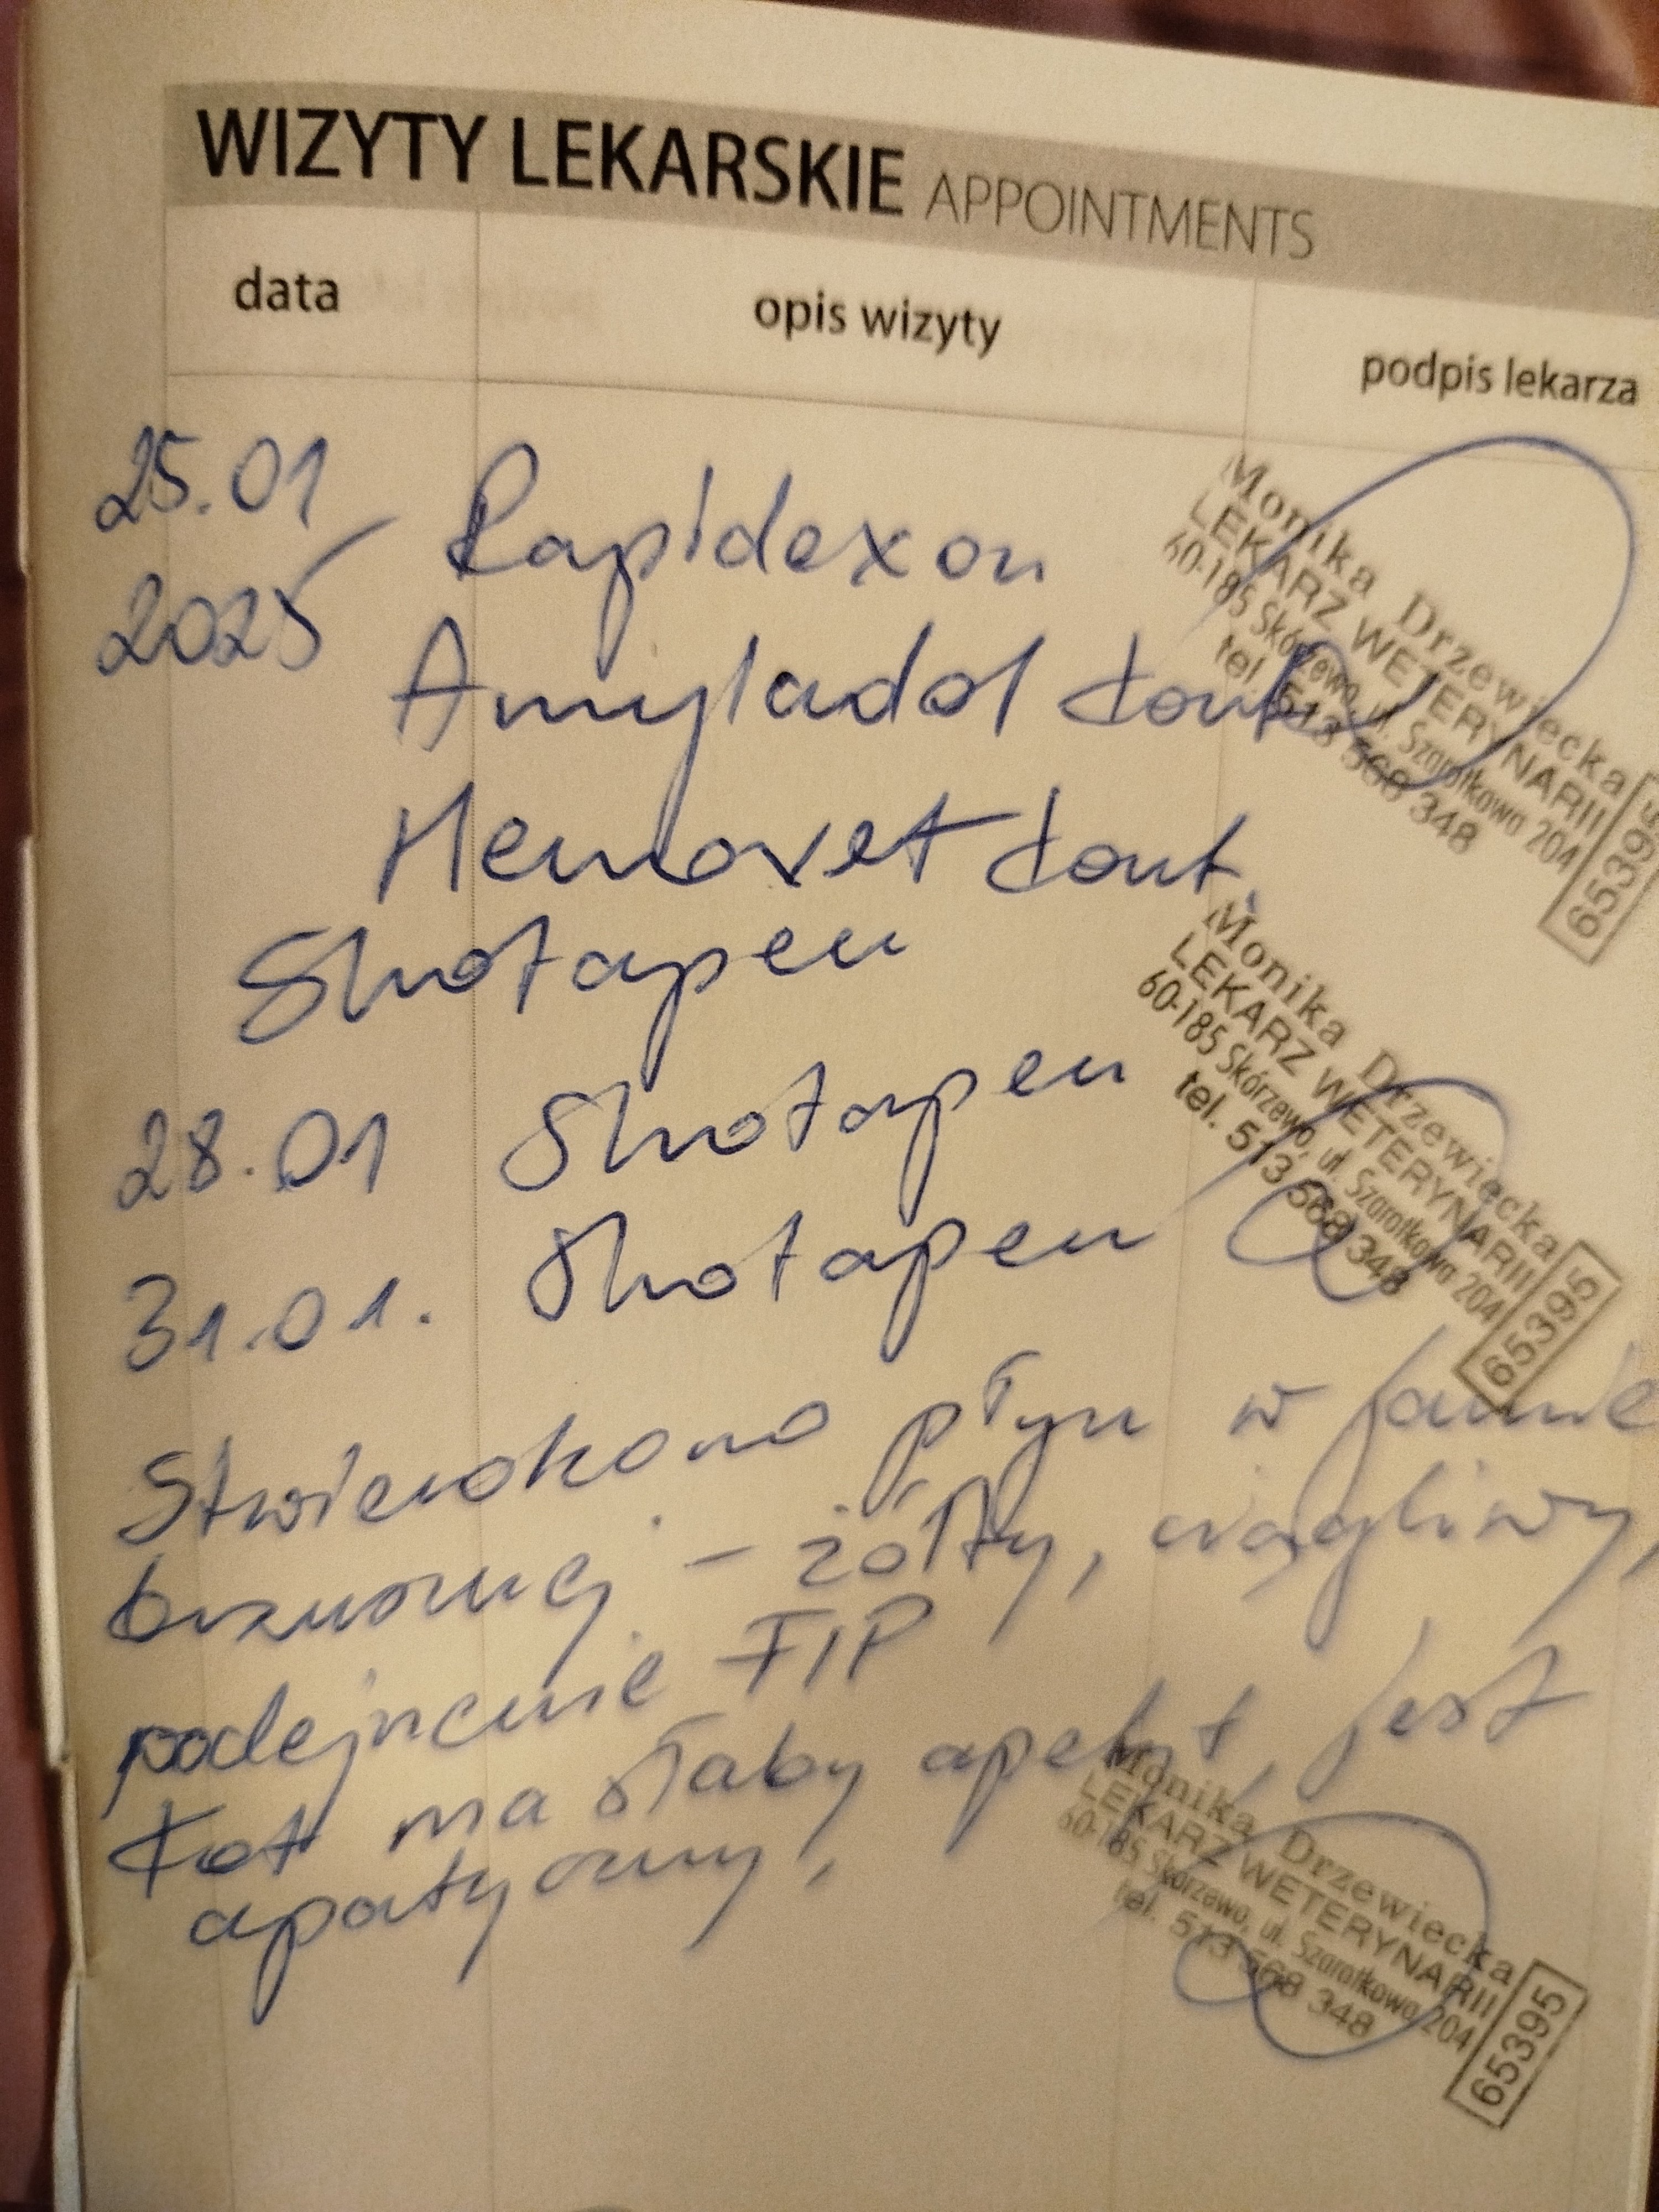 WIZYTY LEKARSKIE APPOINTMENTS
data opis wizyty podpis lekarza
25.01 Rapidexon
2025
Amyladol kont.
Hemovet kont.
Shotapen
Monika Drzewiecka
LEKARZ WETERYNARII
60-185 Skórzewo, ul. Szarotkowa 204
tel. 513 568 348
65395
28.01 Shotapen
31.01. Shotapen
Monika Drzewiecka
LEKARZ WETERYNARII
60-185 Skórzewo, ul. Szarotkowa 204
tel. 513 568 348
65395
Stwierdzono płyn w jamie
brzusznej - żółty, ciągliwy,
podejrzenie FIP
Kot ma słaby apetyt, jest
apatyczny,
Monika Drzewiecka
LEKARZ WETERYNARII
60-185 Skórzewo, ul. Szarotkowa 204
tel. 513 568 348
65395